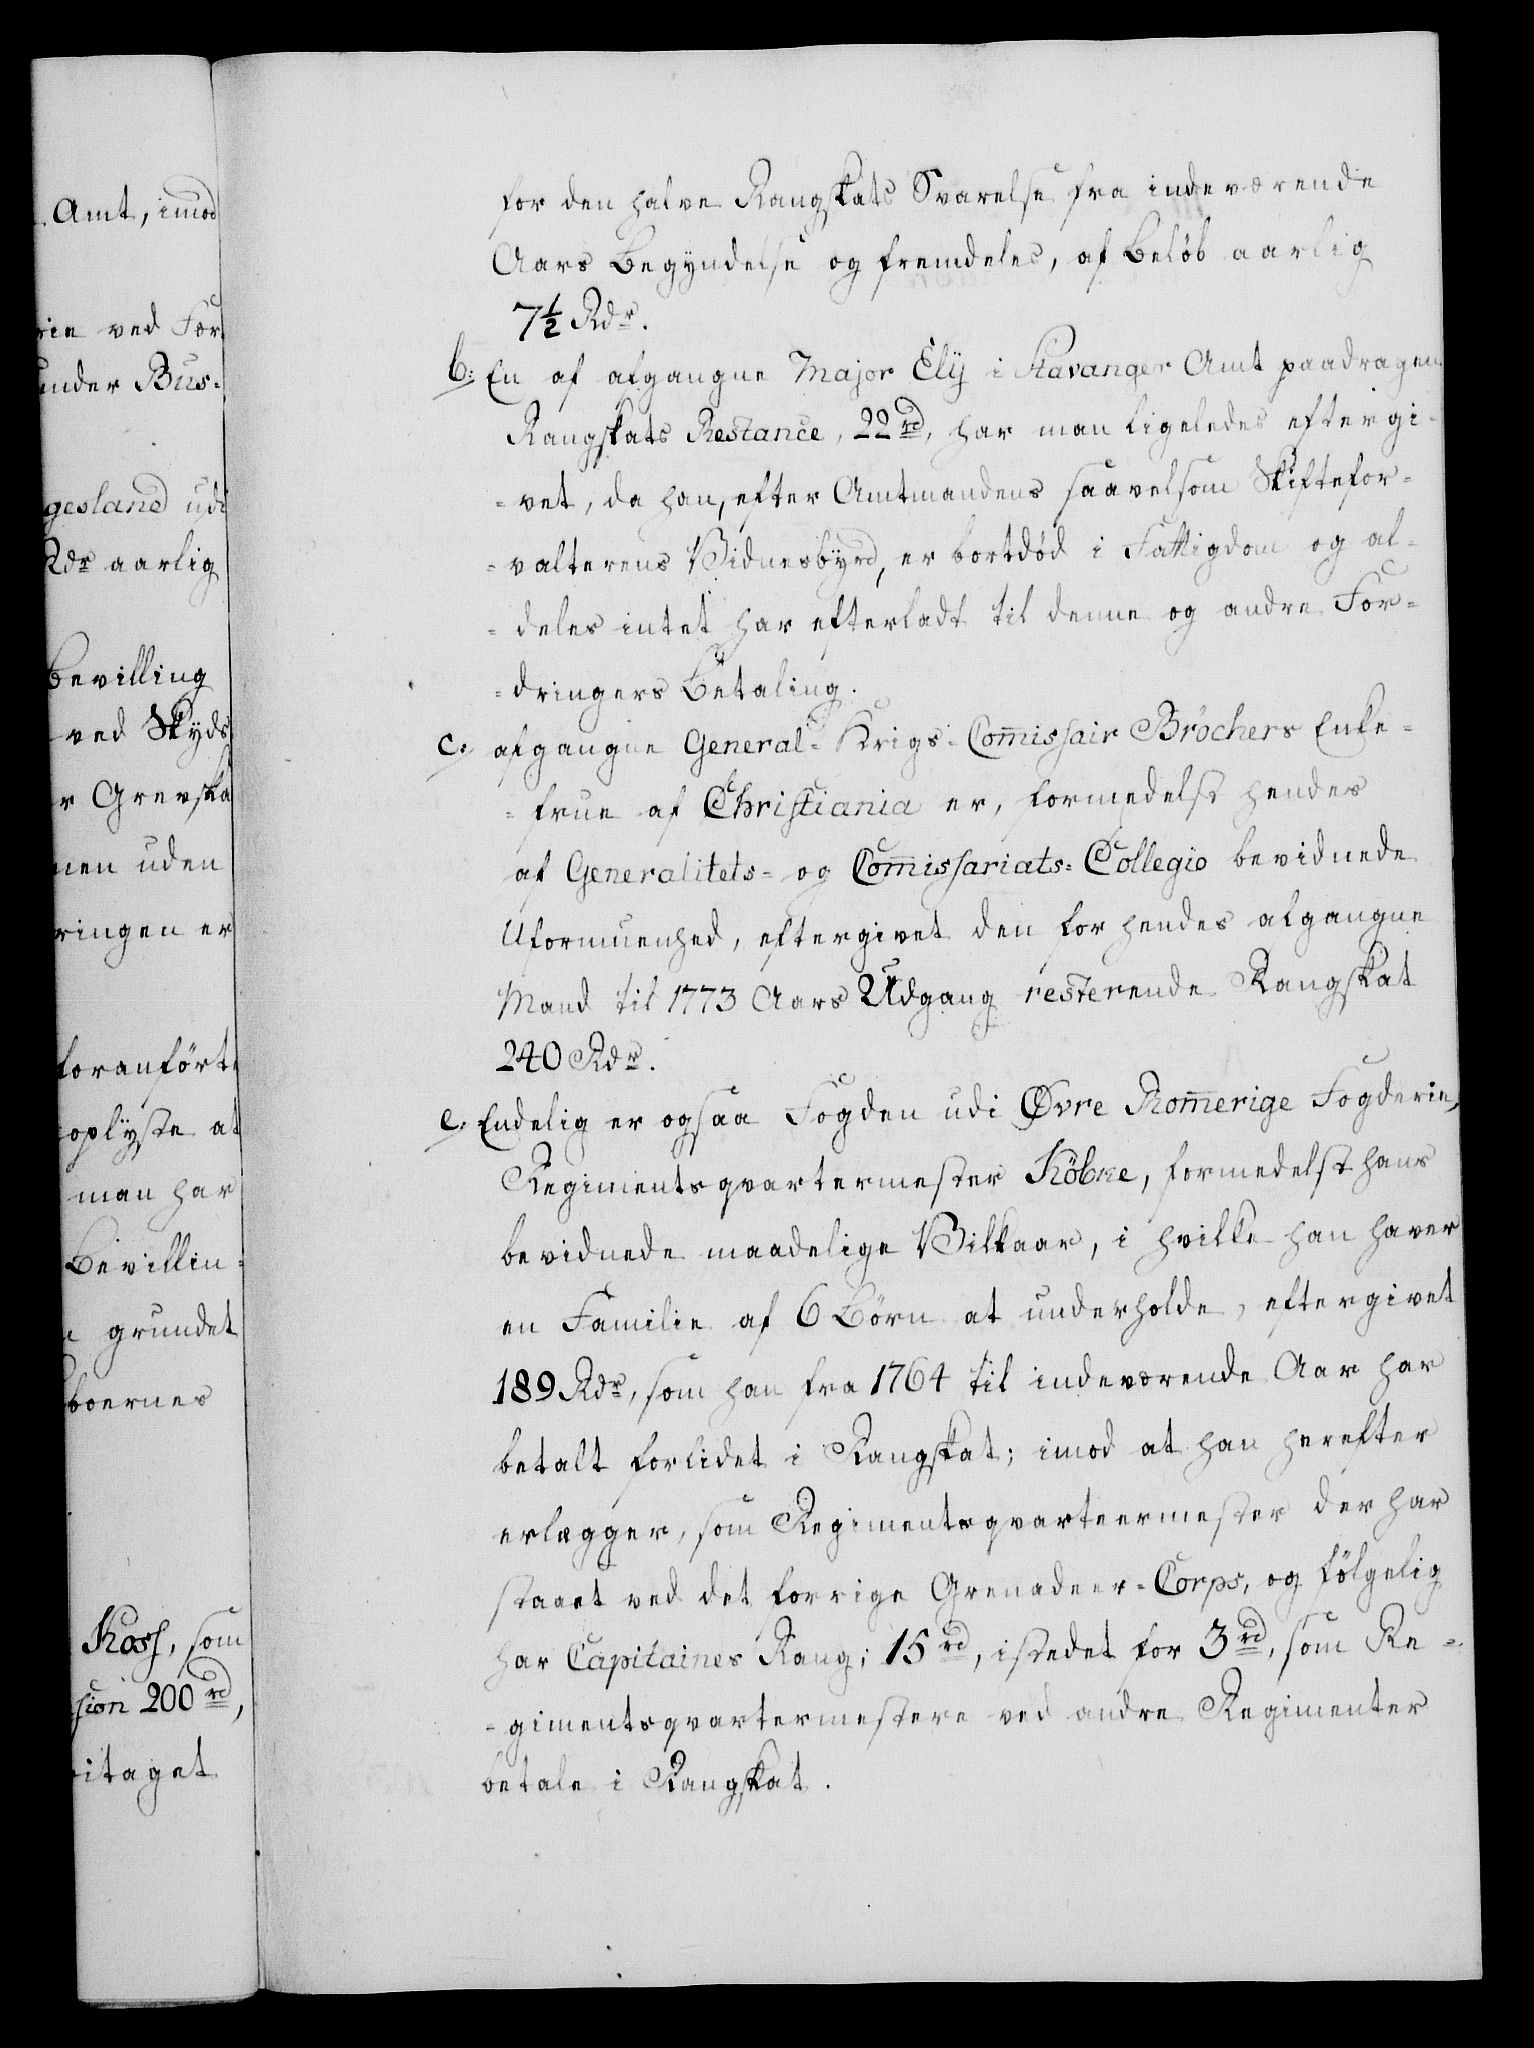 Amt, imod
rie ved For
under Bus-
gesland udi
Rdr aarlig
Bevilling
ved Skyds
r Grevska
nen uden
ringen er
foranført
oplyste at
man har
Bevillin-
grundet
boernes
Koss, som
sion 200 rd,
itaget
for den halve Rangskats Svarelse fra indeværende
Aars Begyndelse og fremdeles, af Beløb aarlig
7½ Rdr.
b: En af afgangne Major Ely i Stavanger Amt paadragen
Rangskats Restance, 22 rd, har man ligeledes eftergi-
-vet, da han, efter Amtmandens saavelsom Skiftefor-
-valterens Vidnesbyrd, er bortdød i Fattigdom og al-
-deles intet har efterladt til denne og andre For-
-dringers Betaling.
c. afgangne General-Krigs-Com̄issair Bröchers Enke-
-frue af Christiania er, formedelst hendes
af Generalitets- og Com̄issariats-Collegio bevidnede
Uformuenhed, eftergivet den for hendes afgangne
Mand til 1773 Aars Udgang resterende Rangskat
240 Rdr.
e. Endelig er ogsaa Fogden udi Øvre Rom̄erige Fogderie,
Regimentsqvartermester Köbke, formedelst hans
bevidnede maadelige Vilkaar, i hvilke han haver
en Familie af 6 Börn at underholde, eftergivet
189 Rdr, som han fra 1764 til indeværende Aar har
betalt forlidet i Rangskat; imod at han herefter
erlægger, som Regimentsqvarteermester der har
staaet ved det forrige Grenadeer-Corps, og fölgelig
har Capitaines Rang; 15 rd, istedet for 3 rd, som Re-
-gimentsqvartermestere ved andre Regimenter
betale i Rangskat.